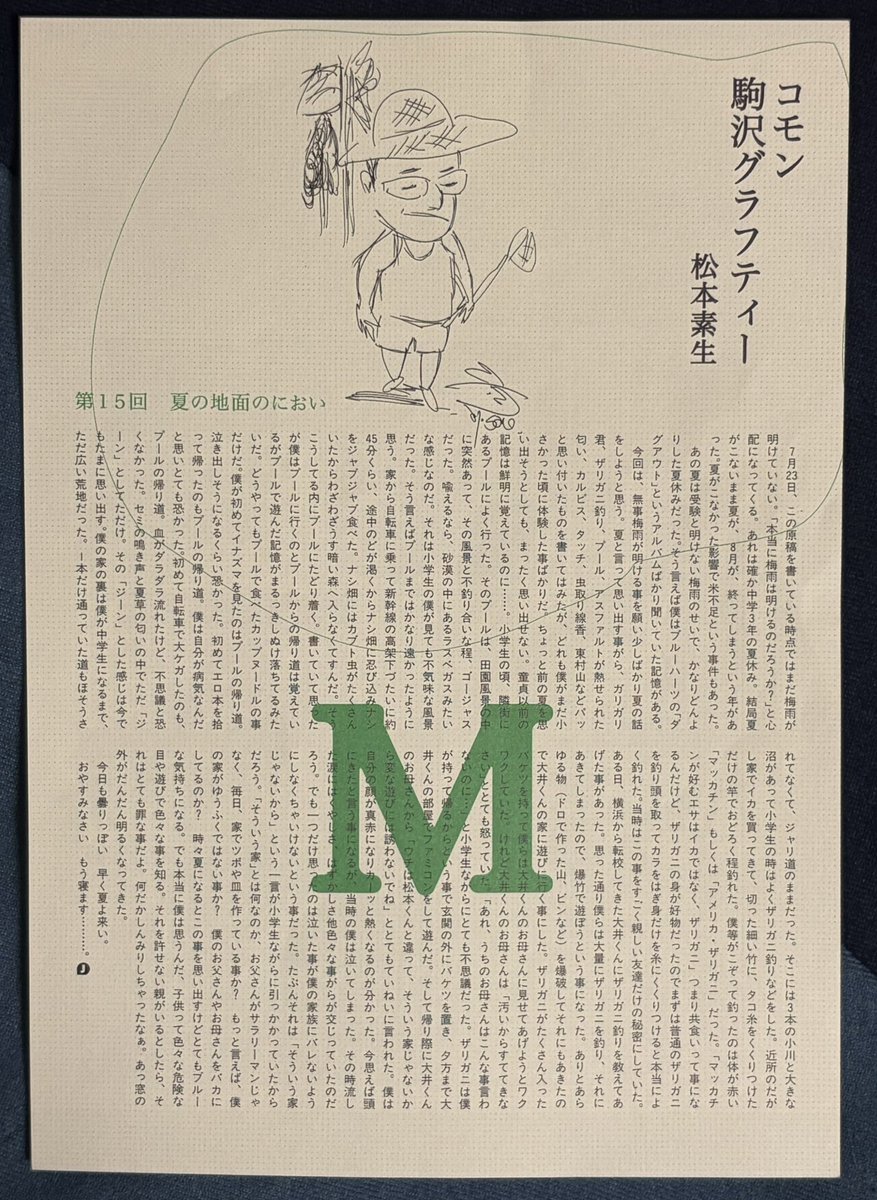 コモン
駒沢グラフティー
松本素生
第15回　夏の地面のにおい
　7月23日、この原稿を書いている時点ではまだ梅雨が
明けていない。「本当に梅雨は明けるのだろうか?」と心
配になってくる。あれは確か中学3年の夏休み。結局夏
がこないまま夏が、8月が、終ってしまうという年があ
った。夏がこなかった影響で米不足という事件もあった。
　あの夏は受験と明けない梅雨のせいで、かなりどんよ
りした夏休みだった。そう言えば僕はブルーハーツの「ダ
グアウト」というアルバムばかり聞いていた記憶がある。
　今回は、無事梅雨が明ける事を願い少しばかり夏の話
をしようと思う。夏と言って思い出す事がら、ガリガリ
君、ザリガニ釣り、プール、アスファルトが熱せられた
匂い、カルピス、タッチ、虫取り線香、東村山などパッ
と思い付いたものを書いてはみたが、どれも僕がまだ小
さかった頃に体験した事ばかりだ。ちょっと前の夏を思
い出そうとしても、まったく思い出せない。童貞以前の
記憶は鮮明に覚えているのに……。小学生の頃、隣街に
あるプールによく行った。そのプールは、田園風景の中
に突然あって、その風景と不釣り合いな程、ゴージャス
だった。喩えるなら、砂漠の中にあるラスベガスみたい
な感じなのだ。それは小学生の僕が見ても不気味な風景
だった。そう言えばプールまではかなり遠かったように
思う。家から自転車に乗って新幹線の高架下づたいに約
45分くらい、途中のどが渇くからナシ畑に忍び込みナシ
をジャブジャブ食べた。ナシ畑にはカブト虫がたくさん
いたからわざわざうす暗い森へ入らなくてすんだ。そう
こうしてる内にプールにたどり着く。書いていて思った
が僕はプールに行くのとプールからの帰り道は覚えてい
るがプールで遊んだ記憶がまるっきしぬけ落ちてるみた
いだ。どうやってもプールで食ったカップヌードルの事
だけだ。僕が初めてイナズマを見たのはプールの帰り道。
泣き出しそうになるくらい恐かった。初めてエロ本を拾
って帰ったのもプールの帰り道。僕は自分が病気なんだ
と思いとても恐かった。初めて自転車で大ケガしたのも、
プールの帰り道。血がダラダラ流れたけど、不思議と恐
くなかった。セミの鳴き声と夏草の匂いの中でただ「ジ
ーン」としてただけ。その「ジーン」とした感じは今で
もたまに思い出す。僕の家の裏は僕が中学生になるまで、
ただ広い荒地だった。一本だけ通っていた道もほそうさ
れてなくて、ジャリ道のままだった。そこには3本の小川と大きな
沼があって小学生の時はよくザリガニ釣りなどをした。近所のだが
し家でイカを買ってきて、切った細い竹に、タコ糸をくくりつけた
だけの竿でおどろく程釣れた。僕等がこぞって釣ったのは体が赤い
「マッカチン」もしくは「アメリカ・ザリガニ」だった。「マッカチ
ンが好むエサはイカではなく、ザリガニ」つまり共食いって事にな
るんだけど、ザリガニの身が好物だったのでまずは普通のザリガニ
を釣り頭を取ってカラをはぎ身だけを糸にくくりつけると本当によ
く釣れた。当時はこの事をすごく親しい友達だけの秘密にしていた。
ある日、横浜から転校してきた大井くんにザリガニ釣りを教えてあ
げた事があった。思った通り僕らは大量にザリガニを釣り、それに
あきてしまったので、爆竹で遊ぼうという事になった。ありとあら
ゆる物（ドロで作った山、ビンなど）を爆破してそれにもあきたの
で大井くんの家に遊びに行く事にした。ザリガニがたくさん入った
バケツを持って僕らは大井くんのお母さんに見せてあげようとワク
ワクしていた。けれど大井くんのお母さんは「汚いからすててきな
さい」ととても怒っていた。「あれ、うちのお母さんはこんな事言わ
ないのに…」と小学生ながらにとても不思議だった。ザリガニは僕
が持って帰るからという事で玄関の外にバケツを置き、夕方まで大
井くんの部屋でファミコンをして遊んだ。そして帰り際に大井くん
のお母さんから「ウチは松本くんと違って、そういう家じゃないか
ら変な遊びには誘わないでね」ととてもていねいに言われた。僕は
自分の顔が真赤になりカーッと熱くなるのが分かった。今思えば頭
にきたと言う事になるが、当時の僕は泣いてしまった。その時流し
た涙にはくやしさ、はずかしさ他色々な事がらが交じっていたのだ
ろう。でも一つだけ思ったのは泣いた事が僕の家族にバレないよう
にしなくちゃいけないという事だった。たぶんそれは「そういう家
じゃないから」という一言が小学生ながらに引っかかっていたから
だろう。「そういう家」とは何なのか、お父さんがサラリーマンじゃ
なく、毎日、家でツボや皿を作っている事か?　もっと言えば、僕
の家がゆうふくではない事か?　僕のお父さんやお母さんをバカに
してるのか?　時々夏になるとこの事を思い出すけどとてもブルー
な気持ちになる。でも本当に僕は思うんだ、子供って色々な危険な
目や遊びで色々な事を知る。それを許せない親がいるとしたら、そ
れはとても罪な事だよ。何だかしんみりしちゃったなぁ。あっ窓の
外がだんだん明るくなってきた。
　今日も曇りっぽい　早く夏よ来い。
　おやすみなさい　もう寝ます………。
M